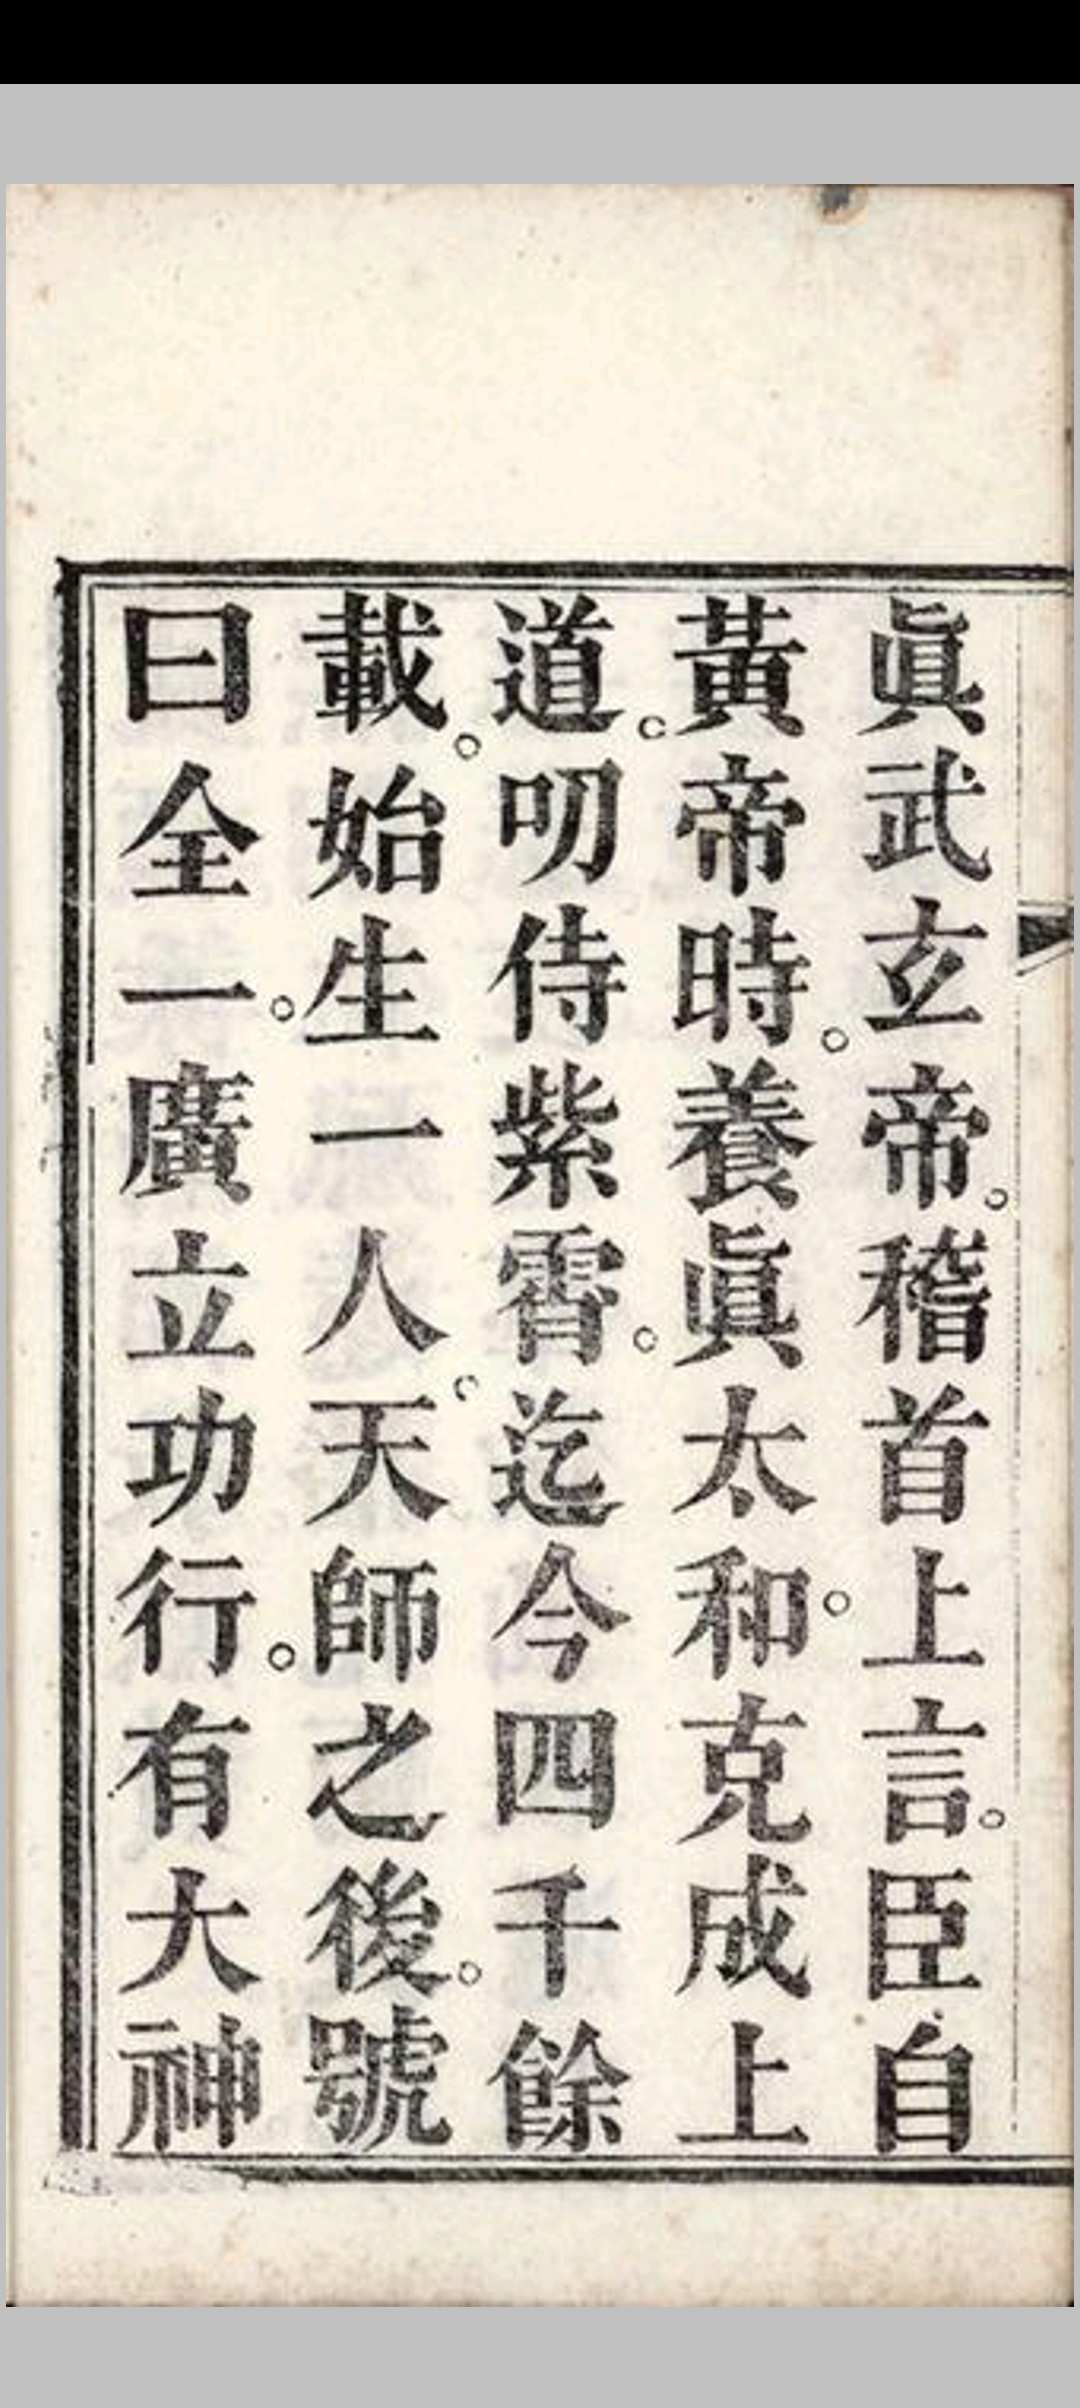 眞武玄帝。稽首上言。臣自
黃帝時。養眞太和。克成上
道。叨侍紫霄。迄今四千餘
載。始生一人。天師之後。號
曰全一。廣立功行。有大神